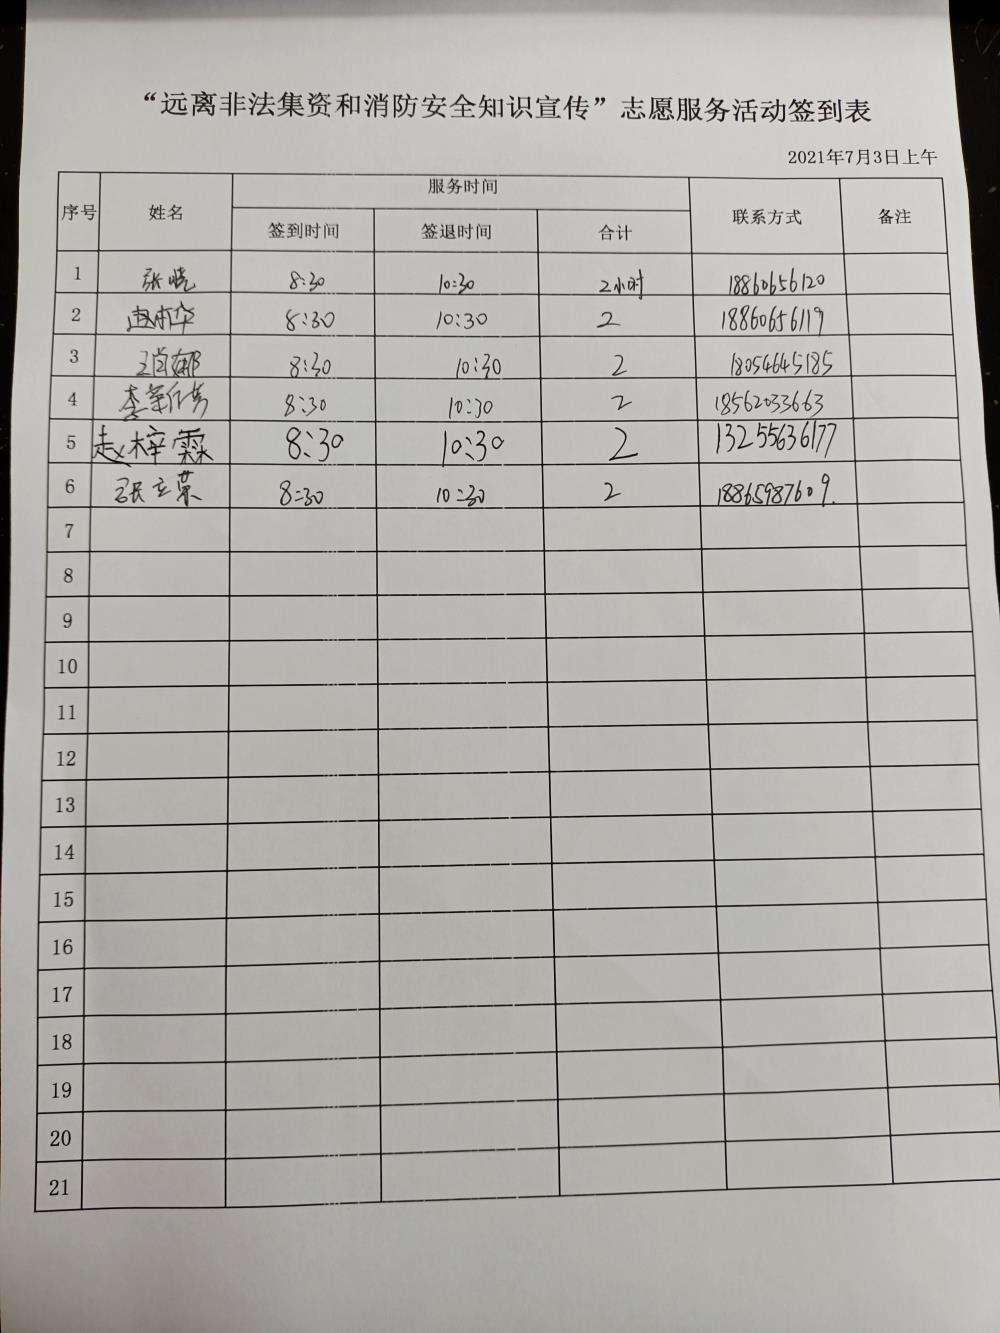 “远离非法集资和消防安全知识宣传”志愿服务活动签到表
2021年7月3日上午
序号 姓名 服务时间 联系方式 备注
签到时间 签退时间 合计
1 张晓 8:30 10:30 2小时 18860656120
2 赵树华 8:30 10:30 2 18860656119
3 8:30 10:30 2 18054645185
4 李 8:30 10:30 2 18562033663
5 赵梓霖 8:30 10:30 2 13255636177
6 张立荣 8:30 10:30 2 18865987609.
7
8
9
10
11
12
13
14
15
16
17
18
19
20
21